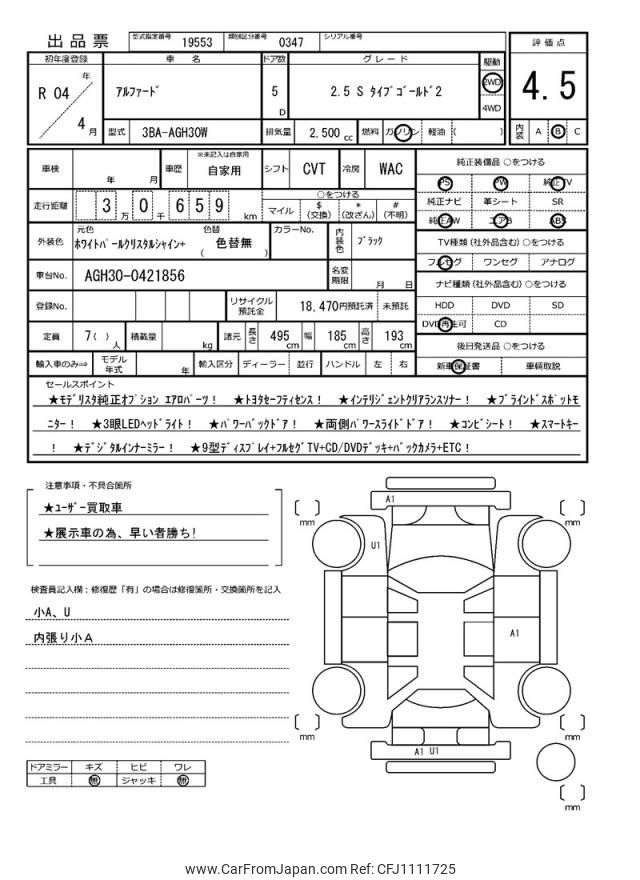 出品票 型式指定番号 19553 類別区分番号 0347 シリアル番号
評価点
初年度登録 車名 ドア数 グレード 駆動
R 04 年 アルファード 5 D 2.5 S タイプゴールド2 2WD 4WD
4.5
4 月 型式 3BA-AGH30W 排気量 2,500 cc 燃料 ガソリン 軽油 ( ) 内装 A B C
車検 年 月 車歴 ※未記入は自家用 自家用 シフト CVT 冷房 WAC
純正装備品 ○をつける
PS PW 純正TV
純正ナビ 革シート SR
純正AW エアB ABS
走行距離 3 万 0 千 6 5 9 km
○をつける
マイル $ (交換) * (改ざん) # (不明)
外装色 元色 ホワイトパールクリスタルシャイン+ 色替 ( 色替無 ) カラーNo. 内装色 ブラック
TV種類 (社外品含む) ○をつける
フルセグ ワンセグ アナログ
車台No. AGH30-0421856 名変期限 月 日
ナビ種類 (社外品含む) ○をつける
HDD DVD SD
DVD再生可 CD
登録No. リサイクル預託金 18,470円預託済 未預託
定員 7( ) 人 積載量 kg 諸元 長さ 495 cm 幅 185 cm 高さ 193 cm
後日発送品 ○をつける
新車保証書 車輌取説
輸入車のみ⇒ モデル年式 年 輸入区分 ディーラー 並行 ハンドル 左 右
セールスポイント
★モデリスタ純正オプション エアロパーツ! ★トヨタセーフティセンス! ★インテリジェントクリアランスソナー! ★ブラインドスポットモ
ニター! ★3眼LEDヘッドライト! ★パワーバックドア! ★両側パワースライドドア! ★コンビシート! ★スマートキー
! ★デジタルインナーミラー! ★9型ディスプレイ+フルセグTV+CD/DVDデッキ+バックカメラ+ETC!
注意事項・不具合箇所
★ユーザー買取車
★展示車の為、早い者勝ち!
検査員記入欄:修復歴「有」の場合は修復箇所・交換箇所を記入
小A、U
内張り小A
A1
mm mm
U1
A1
mm mm
A1 U1
mm
ドアミラー キズ ヒビ ワレ
工具 無 ジャッキ 無
www.CarFromJapan.com Ref: CFJ1111725